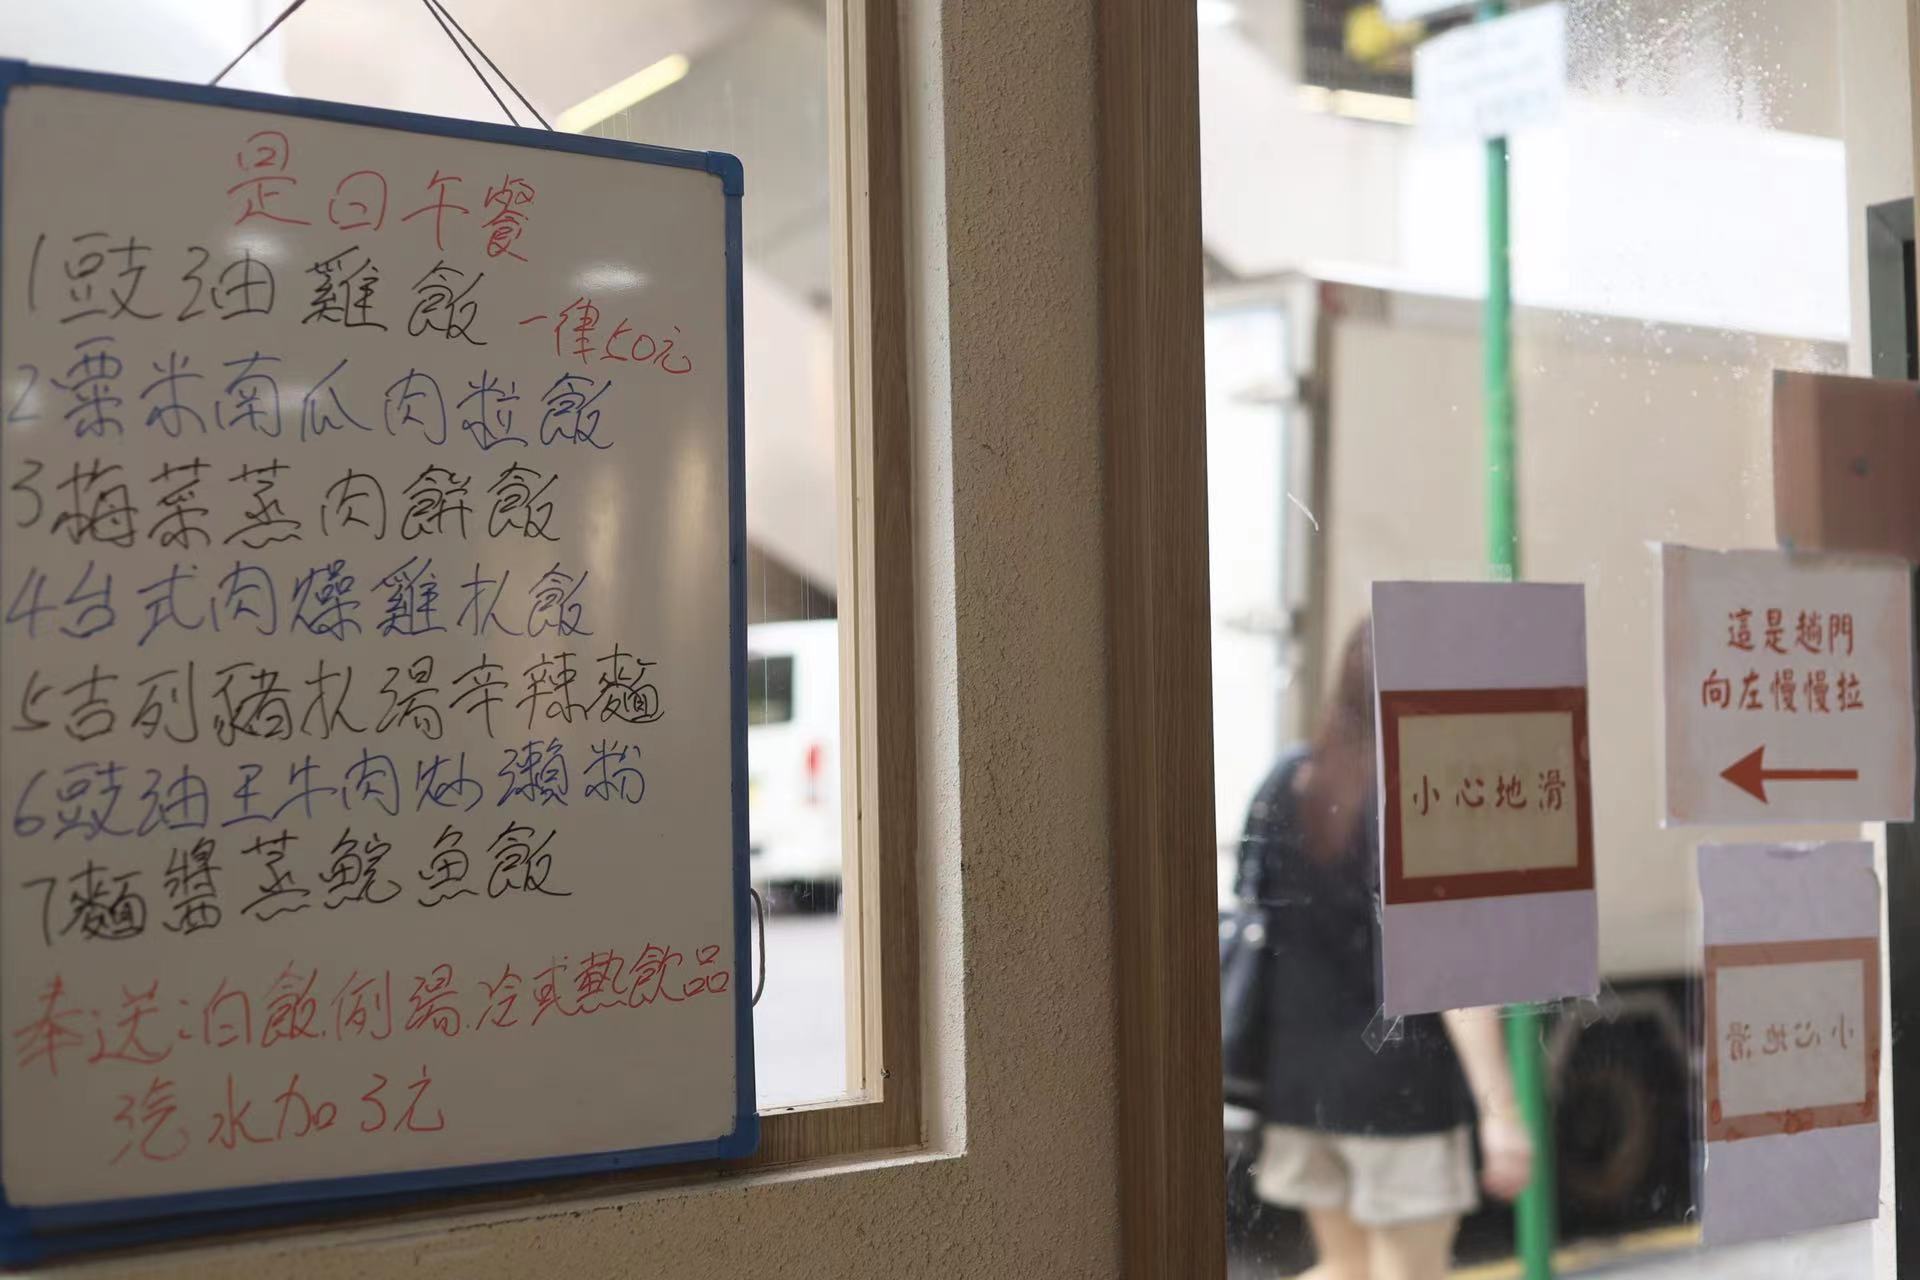 是日午餐
1豉油雞飯
一律50元
2粟米南瓜肉粒飯
3梅菜蒸肉餅飯
4台式肉燥雞扒飯
5吉列豬扒湯辛辣麵
6豉油王牛肉炒瀨粉
7麵醬蒸鯇魚飯
奉送:白飯.例湯.冷或熱飲品
汽水加3元
小心地滑
這是趟門
向左慢慢拉
小心地滑